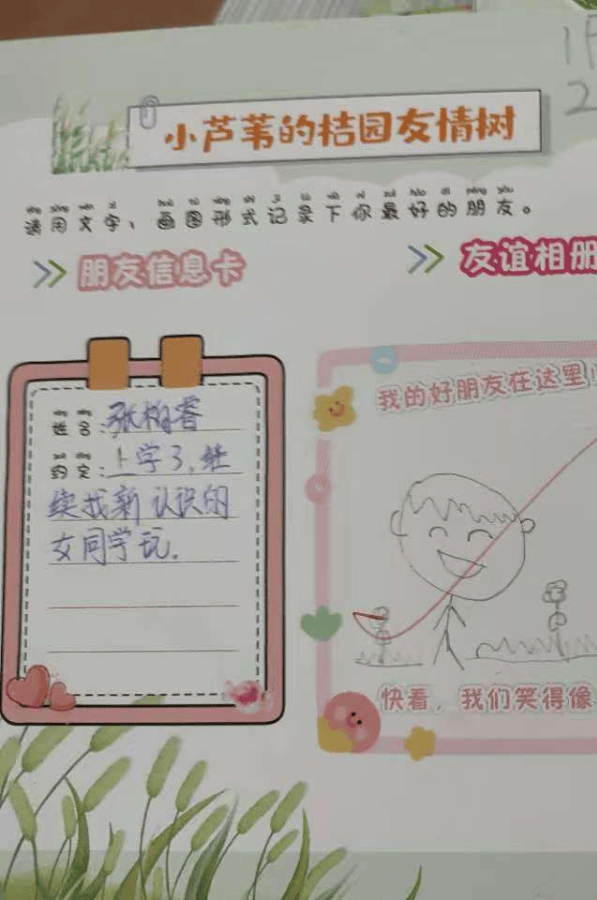 小芦苇的桔园友情树
请用文字、画图形式记录下你最好的朋友。
朋友信息卡
友谊相册
我的好朋友在这里!
姓名:张柏睿
约定:上学了,继
续找新认识的
女同学玩.
快看,我们笑得像